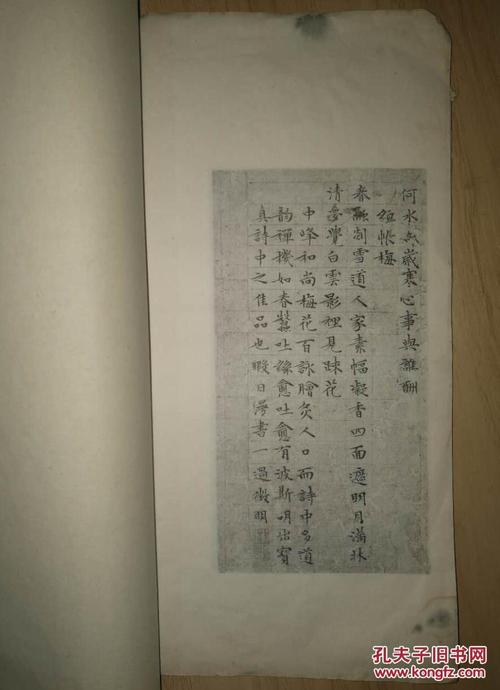 何水無藏寒心事與誰酬
紙帳梅
春融剡雪道人家素幅凝香四面遮明月滿牀
清夢覺白雲影裡見疎花
中峰和尚梅花百詠膾炙人口而詩中多道
韵禪機如春蠶吐絲愈吐愈有波斯明出寳
真詩中之佳品也暇日漫書一過徵明
孔夫子旧书网
www.kongfz.com